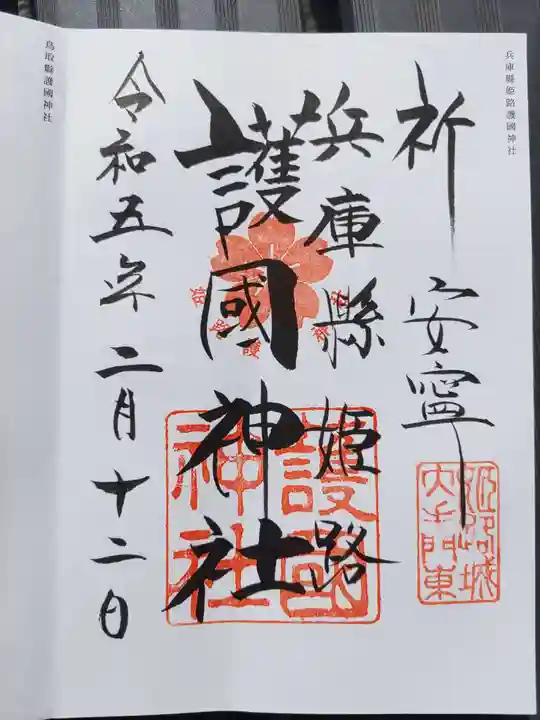 兵庫縣姫路護國神社
祈 安寧
兵庫縣姫路
護國神社
令和五年二月十二日
鳥取縣護國神社
護國
神社
姫路城
大手門東